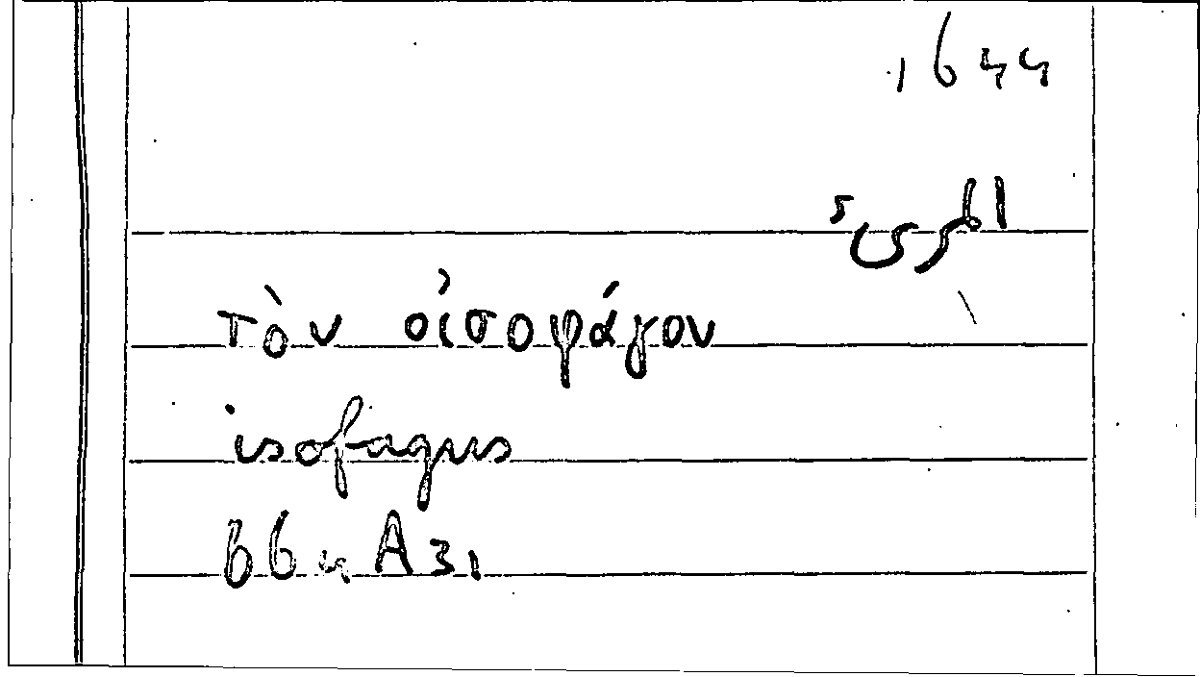 1644
المرىء
τὸν οἰσοφάγον
isofagus
664 A31